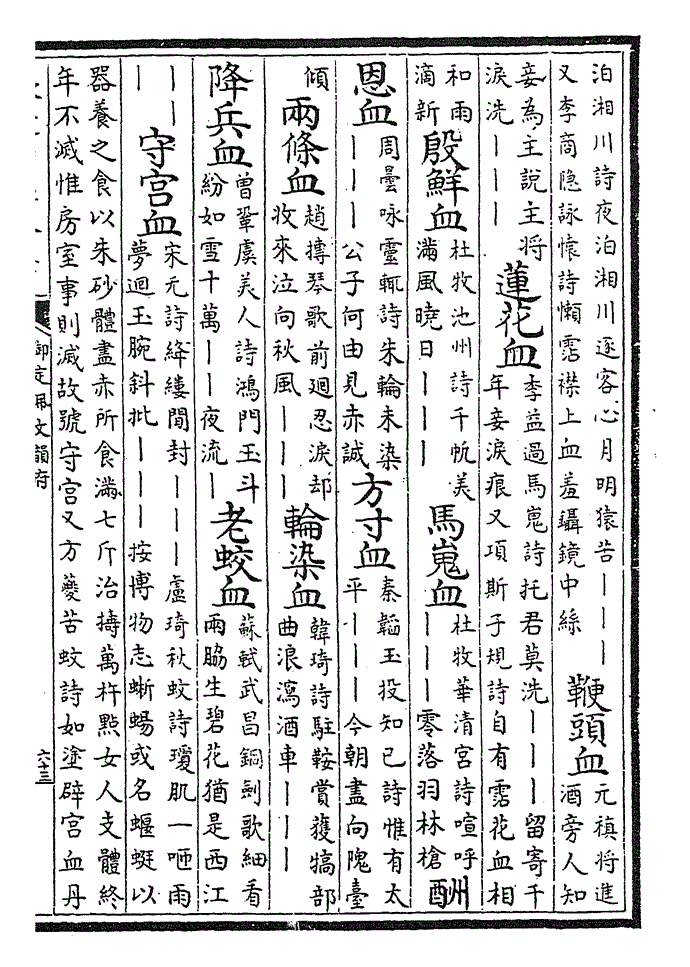 泊湘川詩夜泊湘川逐客心月明猿苦｜｜｜
又李商隐詠懐詩懶霑襟上血羞鑷鏡中絲
鞭頭血
元稹將進
酒旁人知
妾為主說主將
淚洗｜｜｜
蓮花血
李益過馬嵬詩托君莫洗｜｜｜留寄千
年妾淚痕又項斯子規詩自有霑花血相
和雨
滴新
殷鮮血
杜牧池州詩千帆美
滿風曉日｜｜｜
馬嵬血
杜牧華清宮詩喧呼
｜｜｜零落羽林槍
酬
恩血
周曇咏靈輒詩朱輪未染
｜｜｜公子何由見赤誠
方寸血
秦韜玉投知已詩惟有太
平｜｜｜今朝盡向隗臺
傾
兩條血
趙摶琴歌前廻忍淚却
收來泣向秋風｜｜｜
輪染血
韓琦詩駐鞍賞蔟犒部
曲浪瀉酒車｜｜｜
降兵血
曾鞏虞美人詩鴻門玉斗
紛如雪十萬｜｜夜流｜
老蛟血
蘇軾武昌銅劍歌細看
兩脇生碧花猶是西江
｜｜
｜
守宮血
宋元詩絳縷間封｜｜｜盧琦秋蚊詩瓊肌一咂雨
夢迴玉腕斜批｜｜｜按博物志蜥蜴或名蝘蜓以
器養之食以朱砂體盡赤所食滿七斤治擣萬杵㸃女人支體終
年不滅惟房室事則滅故號守宮又方夔苦蚊詩如塗辟宮血丹
御定佩文韻府
六十三